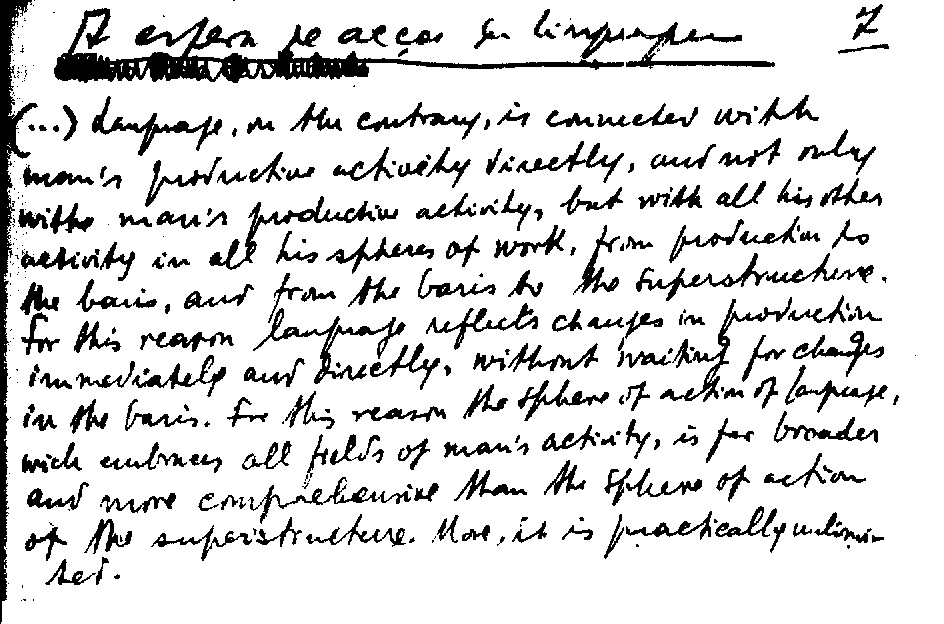 A esfera de acção da linguagem 7
(...) Language, on the contrary, is connected with
man's productive activity directly, and not only
withe man's productive activity, but with all his other
activity in all his spheres of work, from production to
the basis, and from the basis to the superstructure.
For this reason language reflects changes in production
immediately and directly, without waiting for changes
in the basis. For this reason the sphere of action of language,
wich embraces all fields of man's activity, is far broader
and more comprehensive than the sphere of action
of the superstructure. More, it is practically unlimi-
ted.